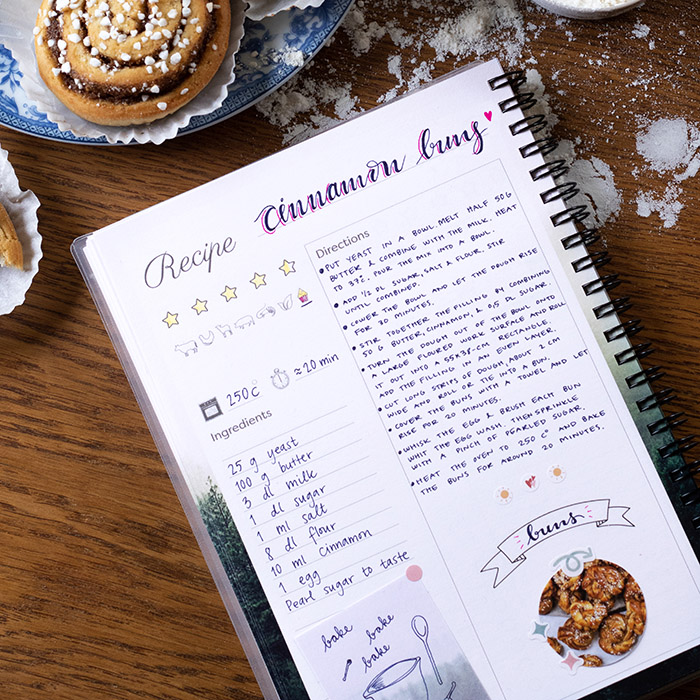 cinnamon buns
Recipe
250 C
≈ 20 min
Ingredients
25 g yeast
100 g butter
3 dl milk
1 dl sugar
1 ml salt
8 dl flour
10 ml cinnamon
1 egg
Pearl sugar to taste
bake
bake
bake
Directions
• PUT YEAST IN A BOWL. MELT HALF 50G
BUTTER & COMBINE WITH THE MILK. HEAT
TO 37C. POUR THE MIX INTO A BOWL.
• ADD 1/2 DL SUGAR, SALT & FLOUR. STIR
UNTIL COMBINED.
• COVER THE BOWL AND LET THE DOUGH RISE
FOR 30 MINUTES.
• STIR TOGETHER THE FILLING BY COMBINING
50 G BUTTER, CINNAMON, & 0,5 DL SUGAR.
• TURN THE DOUGH OUT OF THE BOWL ONTO
A LARGE FLOURED WORK SURFACE AND ROLL
IT OUT INTO A 55x38-CM RECTANGLE.
ADD THE FILLING IN AN EVEN LAYER.
• CUT LONG STRIPS OF DOUGH, ABOUT 2 CM
WIDE AND ROLL OR TIE INTO A BUN.
• COVER THE BUNS WITH A TOWEL AND LET
RISE FOR 20 MINUTES.
• WHISK THE EGG & BRUSH EACH BUN
WHIT THE EGG WASH. THEN SPRINKLE
WITH A PINCH OF PEARLED SUGAR.
• HEAT THE OVEN TO 250 C° AND BAKE
THE BUNS FOR AROUND 20 MINUTES.
buns